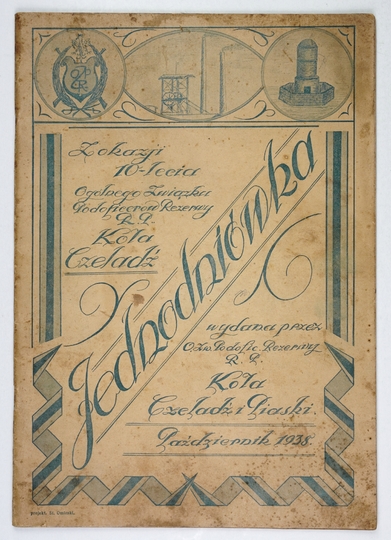 Z okazji
10-lecia
Ogólnego Związku
Podoficerów Rezerwy
R.P.
Koła
Czeladź
Jednodniówka
wydana przez
O. Zw. Podofic. Rezerwy
R. P.
Koła
Czeladź i Piaski.
Październik 1938.